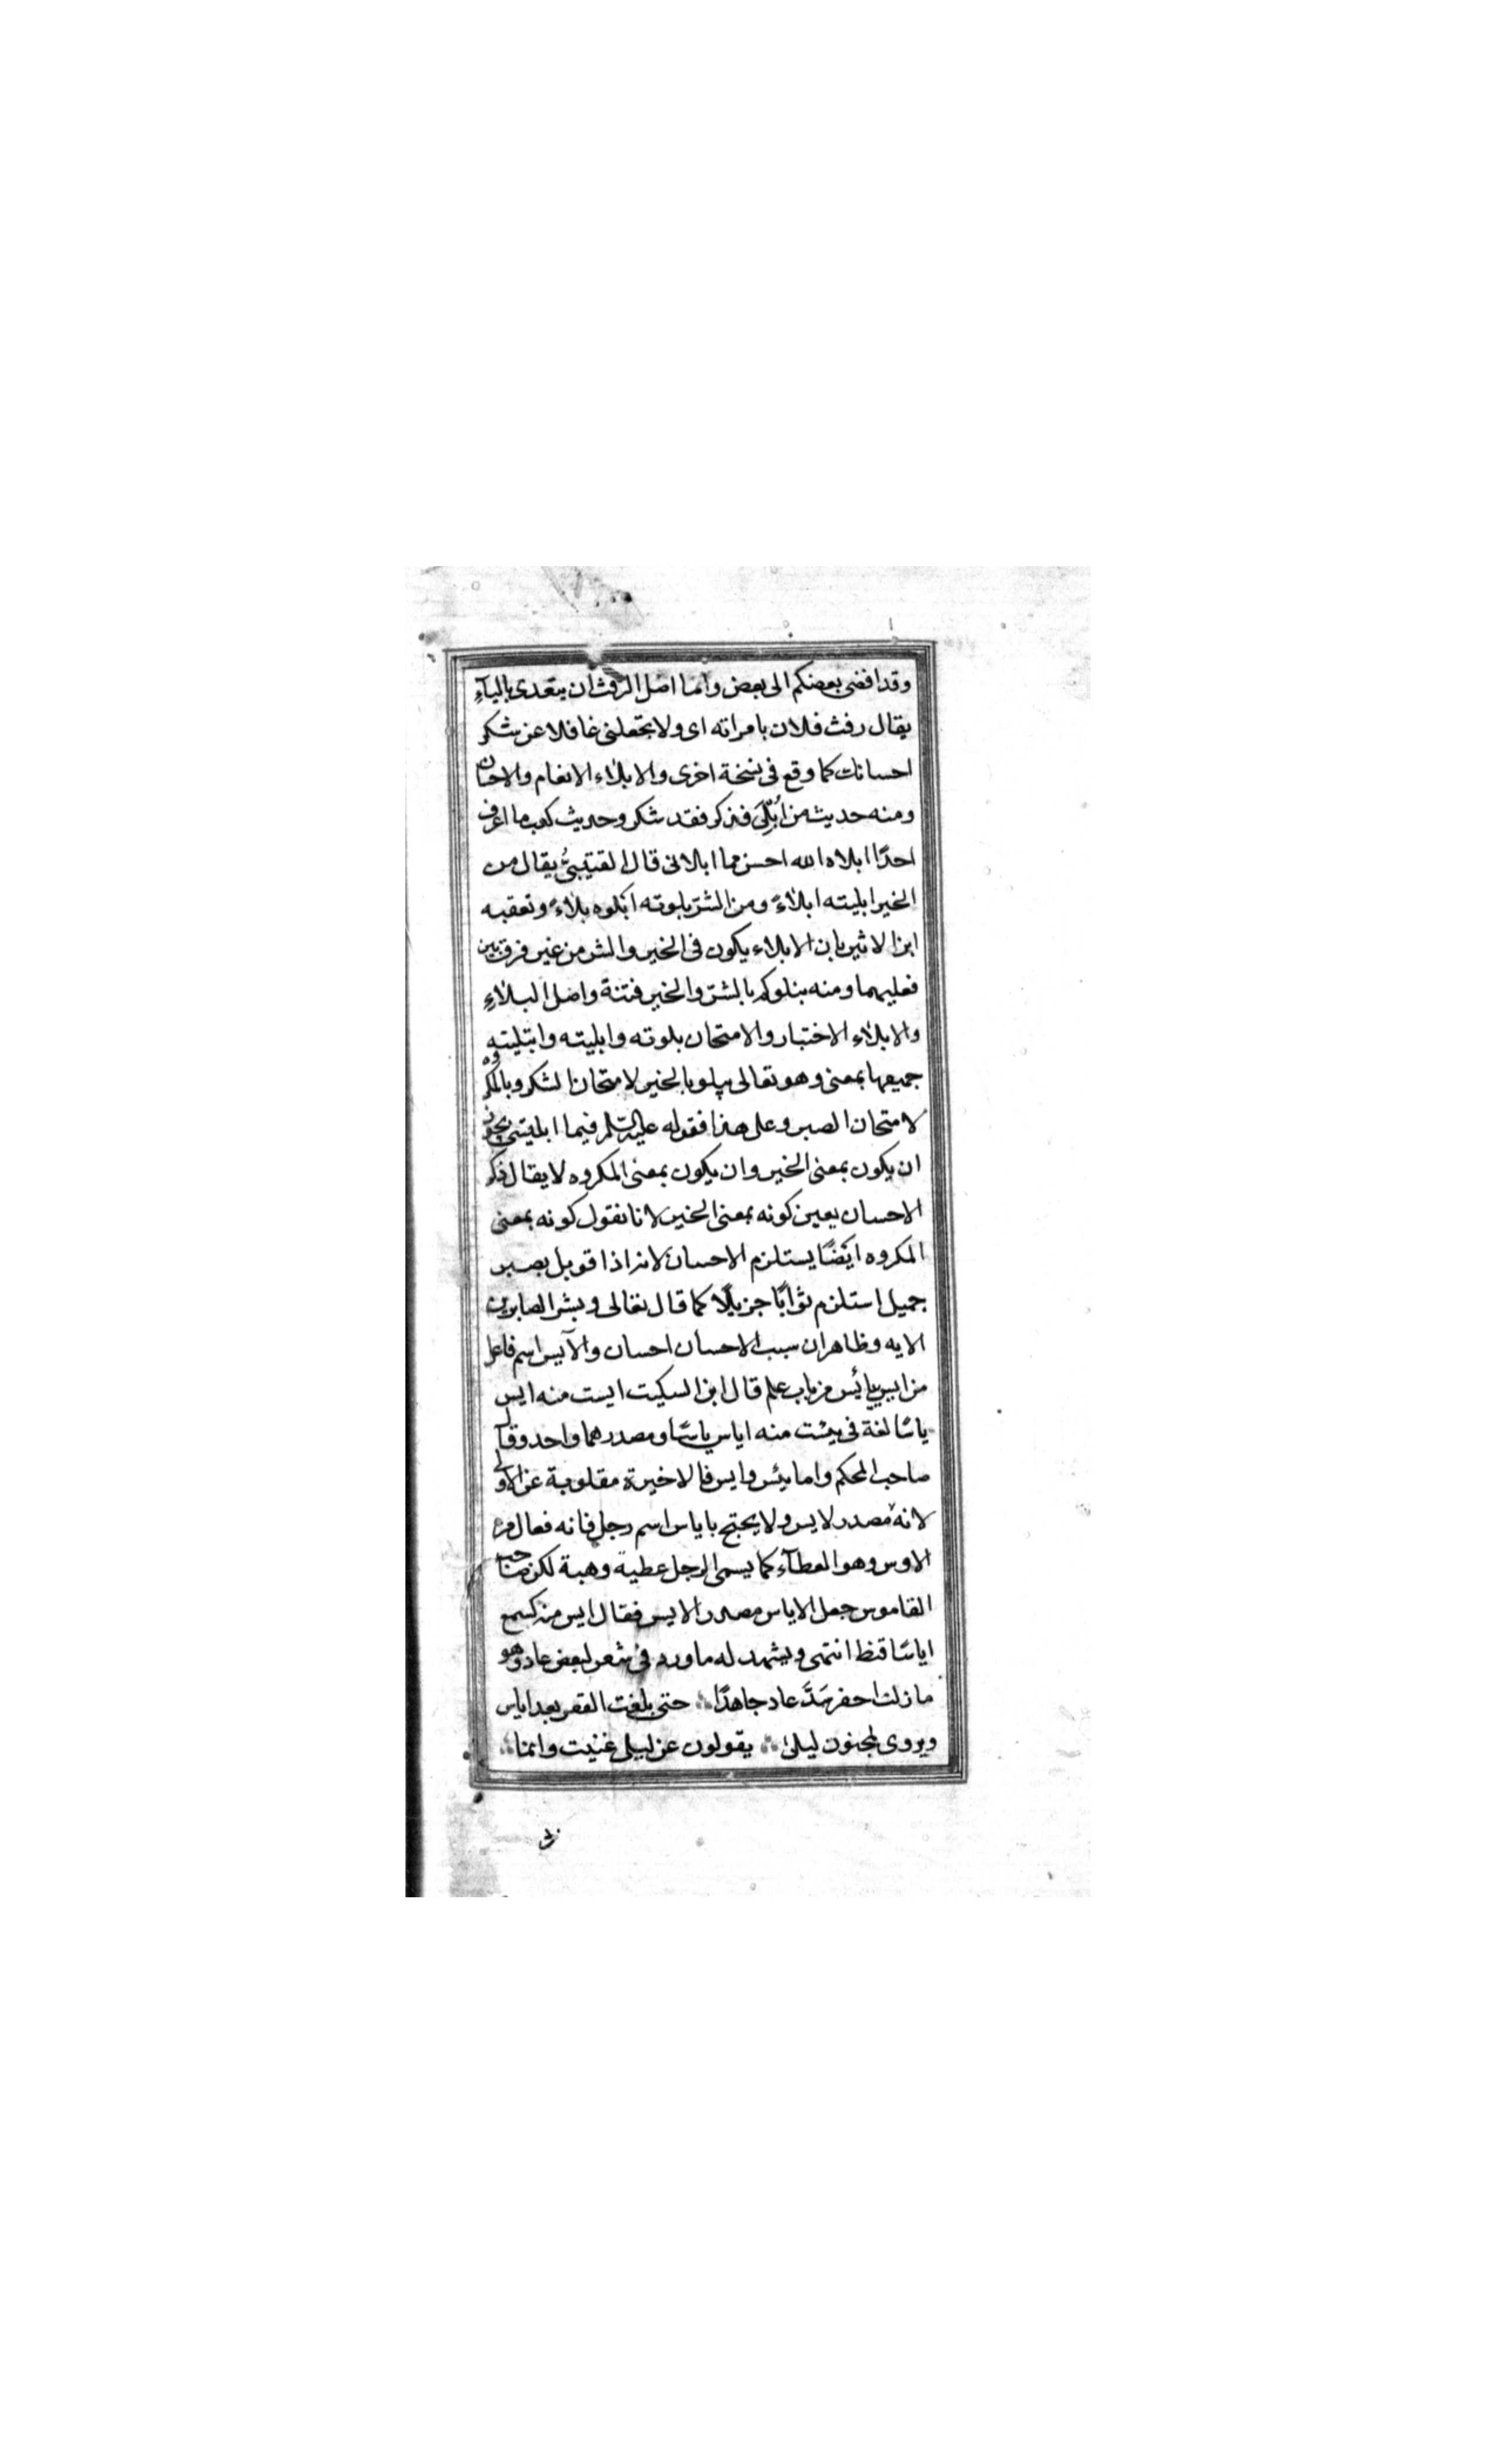 وقد افضى بعضكم الى بعض وانما اصل الرفث ان يتعدى بالبآءِ
يقال رفث فلان بامراته اى ولا تجعلنى غافلا عن شكر
احسانك كما وقع فى نسخة اخرى والابلاء الانعام والاحسان
ومنه حديث من اُبْلِىَ فذكر فقد شكر وحديث كعب ما اعرف
احدًا ابلاه الله احسن مما ابلانى قال القتيبىُّ يقال من
الخير ابليته ابلاءً ومن الشرّ بلوته ابلوه بلاءً وتعقبه
ابن الاثير بان الابلاء يكون فى الخير والشر من غير فرق بين
فعليهما ومنه نبلوكم بالشرّ والخير فتنة واصل البلاءِ
والابلاء الاختبار والامتحان بلوته وابليته وابتليته
جميعها بمعنى وهو تعالى يبلو بالخير لامتحان الشكر وبالمكروه
لامتحان الصبر وعلى هذا فقوله عليه السّلم فيما ابليتنى يجوز
ان يكون بمعنى الخير وان يكون بمعنى المكروه لا يقال ذكر
الاحسان يعين كونه بمعنى الخير لانا نقول كونه بمعنى
المكروه ايضًا يستلزم الاحسان لانه اذا قوبل بصبر
جميل استلزم ثوابًا جزيلًا كما قال تعالى وبشر الصابرين
الايه وظاهر ان سبب الاحسان احسان والآيس اسم فاعل
من ايس يايَس من باب علم قال ابن السكيت ايست منه ايس
ياسًا لغة فى يئست منه اياس ياسًا ومصدرهما واحد وقال
صاحب المحكم واما يئس وايس فالاخيرة مقلوبة عن الاولى
لانه مصدر لايس ولا يحتج باياس اسم رجل فانه فعال من
الاوس وهو العطآء كما يسمى الرجل عطية وهبة لكن صاحب
القاموس جعل الاياس مصدر الايس فقال ايس منه كسمع
اياسًا قنط انتهى ويشهد له ما ورد فى شعر لبعض عاد وهو
ما زلت احفر سَدَّ عاد جاهدًا حتى بلغت القعر بعد اياس
ويروى لمجنون ليلى يقولون عن ليلى غنيت وانما